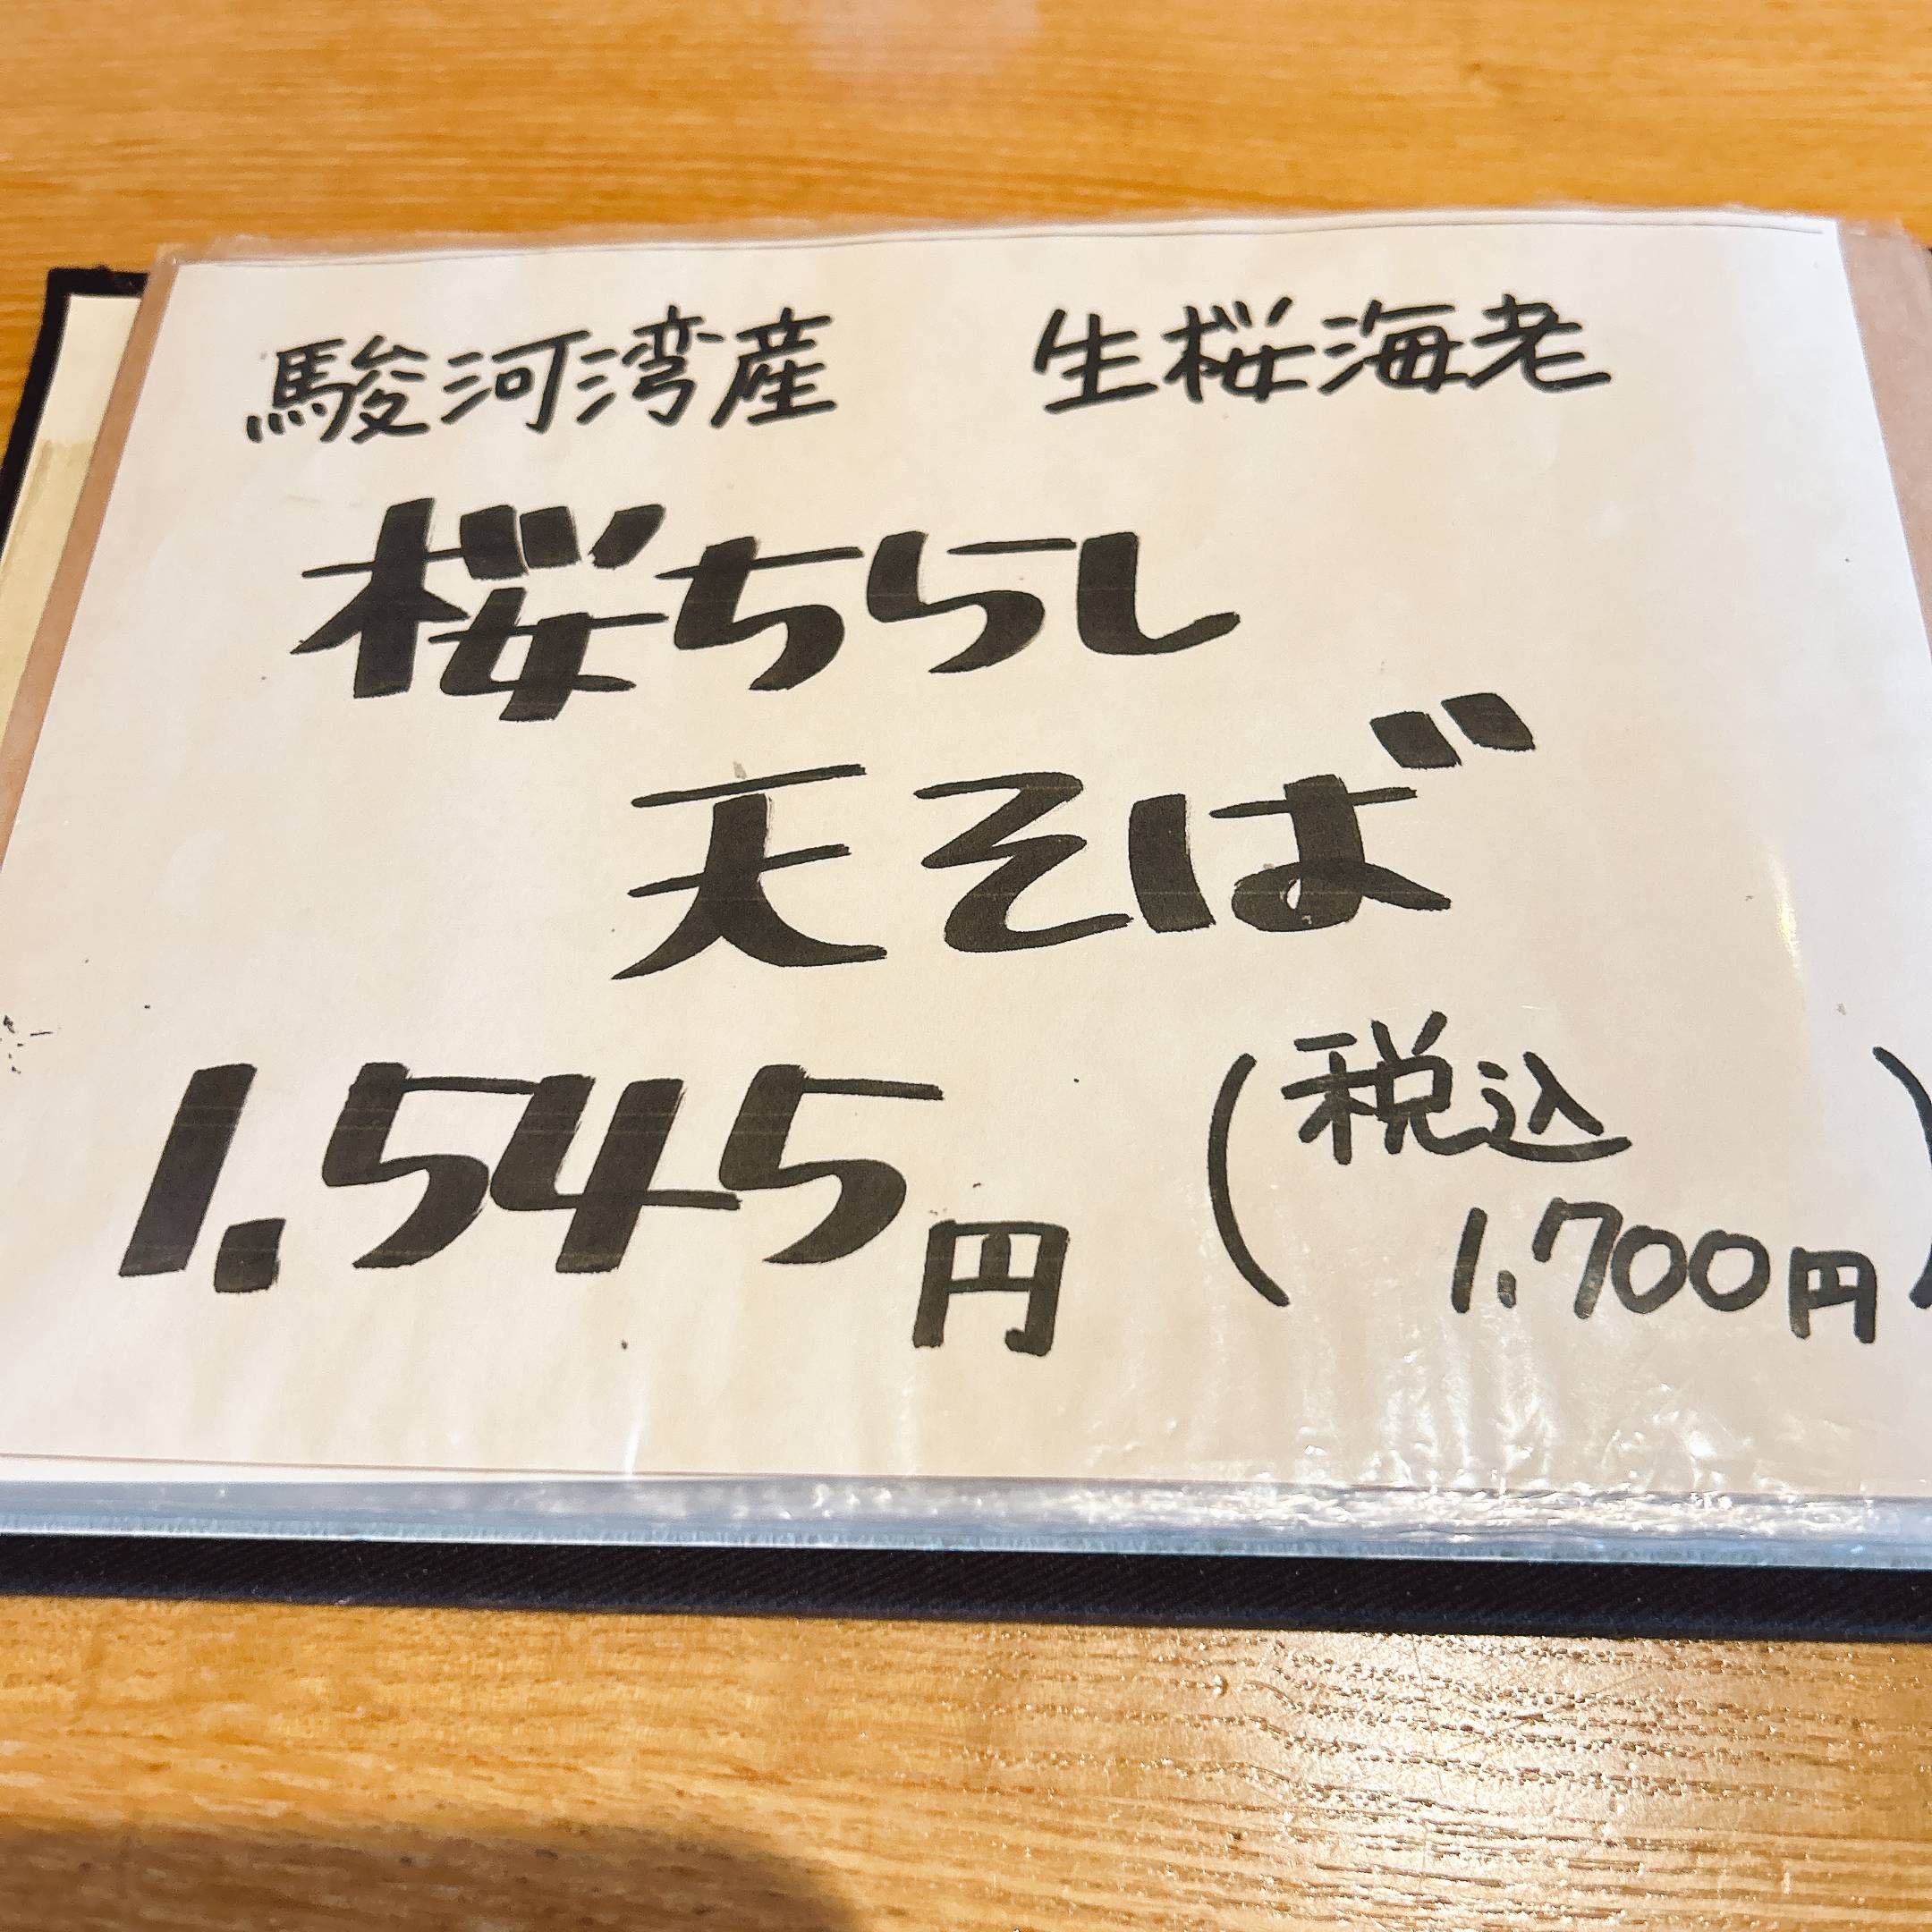 駿河湾産 生桜海老
桜ちらし
天そば
1.545円
(税込
1.700円)